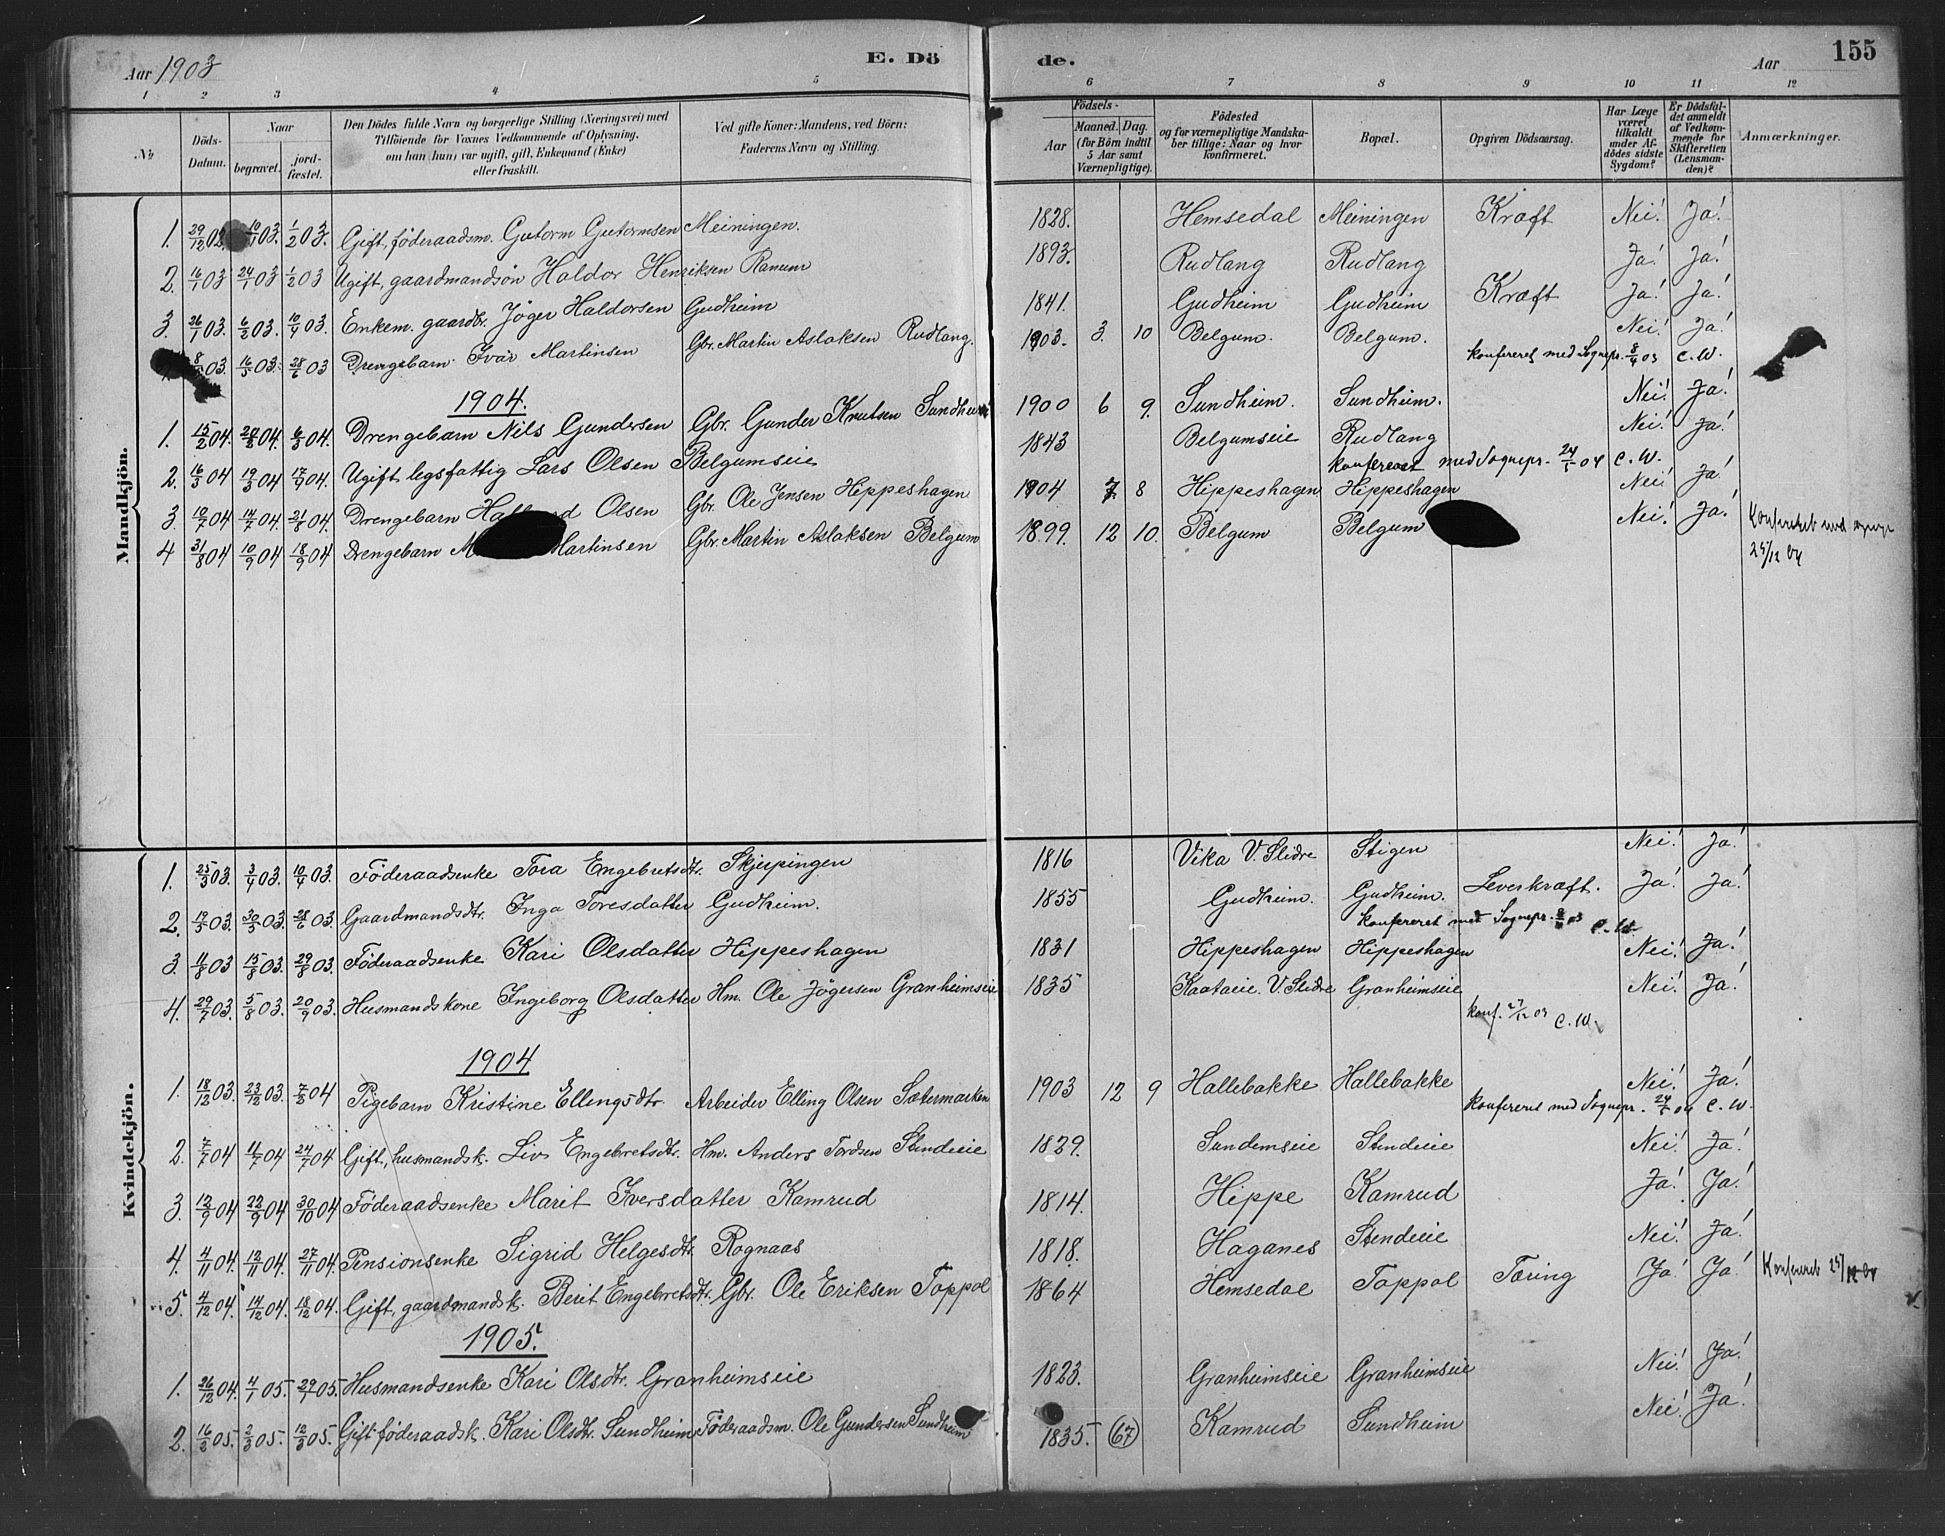 Aar 1903 E. Dö de. Aar 155
1 2 3 4 5 6 7 8 9 10 11 12
No Döds-Datum. Naar begravet. jord-fæstet. Den Dödes fulde Navn og borgerlige Stilling (Næringsvei) med Tilföiende for Voxnes Vedkommende af Oplysning, om han (hun) var ugift, gift, Enkemand (Enke) eller fraskilt. Ved gifte Koner: Mandens, ved Börn: Faderens Navn og Stilling. Födsels- Aar Maaned. Dag. (for Börn indtil 5 Aar samt Værnepligtige). Födested og for værnepligtige Mandskaber tillige: Naar og hvor konfirmeret. Bopæl. Opgiven Dödsaarsag. Har Læge været tilkaldt under Afdödes sidste Sygdom? Er Dödsfaldet anmeldt af Vedkommende for Skifteretten (Lensmanden)? Anmærkninger.
Mandkjön.
1. 29/12 02 10/1 03. 1/2 03. Gift, föderaadsm. Gutorm Gutormsen Meiningen. 1828. Hemsedal Meiningen Kræft Nei! Ja!
2. 16/1 03 24/1 03 1/2 03 Ugift, gaardmandsön Haldor Henriksen Ranum 1893. Rudlang Rudlang Ja! Ja!
3. 26/1 03. 6/2 03. 10/4 03. Enkem. gaardbr. Jöger Haldorsen Gudheim 1841. Gudheim Gudheim Kræft Ja! Ja!
03. 16/5 03. 28/6 03 Drengebarn Ivär Martinsen Gbr. Martin Aslaksen Rudlang. 1903. 3. 10 Belgum. Belgum. Nei! Ja!
konfereret med Sognepr. 8/4 03 C. W.
1904.
1. 15/2 04. 04. 6/3 04. Drengebarn Nils Gundersen Gbr. Gunder Knutsen Sundheim 1900 6 9. Sundheim. Sundheim. Nei! Ja!
2. 16/3 04 19/3 04 17/4 04. Ugift legsfattig Lars Olsen Belgumseie 1843 Belgumseie Rudlang Nei! Ja!
konfereret med Sognepr. 24/5 04 C. W.
3. 10/7 04 14/7 04. 21/8 04. Drengebarn Olsen Gbr. Ole Jensen Hippeshagen 1904 7 8 Hippeshagen Hippeshagen Nei! Ja!
4 31/8 04 10/9 04 18/9 04 Drengebarn Martinsen Gbr. Martin Aslaksen Belgum 1899. 12 10. Belgum Belgum Nei! Ja! Konfereret med
25/12 04
Kvindekjön.
1. 25/3 03. 3/4 03. 10/4 03. Föderaadsenke Tora Engebretsdtr. Skjerpingen 1816 Vika V. Slidre Stigen Nei! Ja!
2. 19/5 03. 30/5 03. 28/6 03. Gaardmandsdtr. Inga Toresdatter Gudheim. 1855 Gudheim. Gudheim. Leverkræft. Ja! Ja!
konfereret med Sognepr. 03 C. W.
3. 11/8 03 15/8 03. 29/8 03. Föderaadsenke Kari Olsdatter Hippeshagen 1831 Hippeshagen Hippeshagen Nei! Ja!
4. 29/7 03. 5/8 03. 20/9 03. Husmandskone Ingeborg Olsdatter Hm. Ole Jögersen Granheimseie 1835 Kaataeie. V. Slidre Granheimseie Nei! Ja!
konf. 03 C. W.
1904
1. 18/12 03. 23/12 03. 7/2 04 Pigebarn Kristine Ellingsdtr. Arbeider Elling Olsen Sætermarken 1903 12 9 Hallebakke Hallebakke Nei! Ja!
konfereret med Sognepr. 24/5 04 C. W.
2. 7/7 04 11/7 04. 24/7 04 Gift, husmandsk. Liv Engebretsdtr. Hm. Anders Tordsen Stendieie 1829. Sundemseie Stendieie Nei! Ja!
3. 13/9 04 22/9 04 30/10 04 Föderaadsenke Marit Iversdatter Kamrud 1814. Hippe Kamrud Ja! Ja!
4. 4/11 04. 12/11 04. 27/11 04. Pensionsenke Sigrid Helgesdtr. Rognaas 1818. Haganes Stendieie Nei! Ja!
5. 4/12 04. 14/12 04. 18/12 04. Gift, gaardmandsk. Berit Engebretsdtr. Gbr. Ole Eriksen Toppol 1864 Hemsedal Toppol Tæring Ja! Ja! Konfereret 25/12 04
1905.
1. 26/12 04. 4/1 05. 29/1 05. Husmandsenke Kari Olsdtr. Granheimseie 1823. Granheimseie Granheimseie Nei! Ja!
2. 16/2 05. 2/3 05. 12/3 05. Gift föderaadsk. Kari Olsdtr. Sundheim Föderaadsm. Ole Gundersen Sundheim 1835. (67) Kamrud Sundheim Nei! Ja!